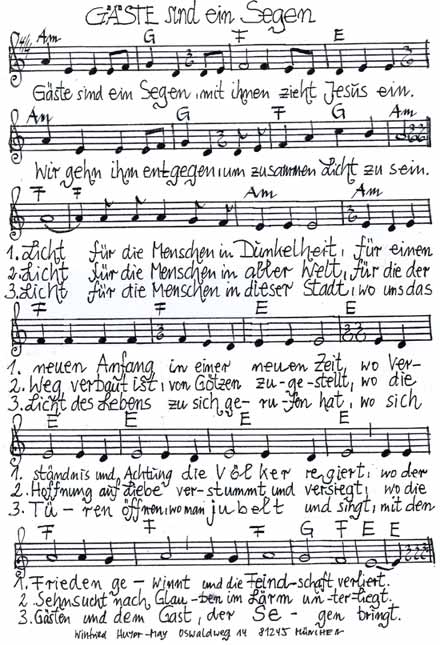 GÄSTE sind ein Segen
4/4 Am G F E
Gäste sind ein Segen, mit ihnen zieht Jesus ein.
Am G F E Am
Wir gehn ihm entgegen, um zusammen Licht zu sein.
F F Am Am
1. Licht für die Menschen in Dunkelheit, für einen
2. Licht für die Menschen in aller Welt, für die der
3. Licht für die Menschen in dieser Stadt, wo uns das
F F E E
1. neuen Anfang in einer neuen Zeit, wo Ver-
2. Weg verbaut ist, von Götzen zu-ge-stellt, wo die
3. Licht des Lebens zu sich ge-ru-fen hat, wo sich
E E E E
1. ständnis und Achtung die Völker regiert, wo der
2. Hoffnung auf Liebe ver-stummt und versiegt, wo die
3. Tü-ren öffnen, wo man jubelt und singt, mit den
F F G F E E
1. Frieden ge-winnt und die Feind-schaft verliert.
2. Sehnsucht nach Glau-ben im Lärm un-ter-liegt.
3. Gästen und dem Gast, der Se-gen bringt.
Oswaldweg 14 81245 München